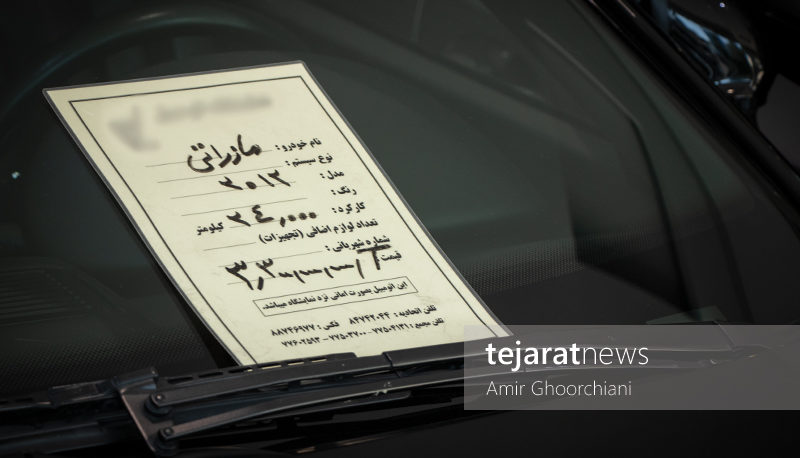 نام خودرو : مازراتی
نوع سیستم :
مدل : ۲۰۱۲
رنگ :
کارکرد : ۲۴,۰۰۰ کیلومتر
تعداد لوازم اضافی (تجهیزات)
شماره شهربانی :
قیمت
این اتومبیل بصورت امانی نزد نمایشگاه میباشد.
تلفن اتحادیه : ۸۴۷۴۲۰۴۴ فکس : ۸۸۷۴۶۹۷۷
تلفن مجتمع : ۷۷۵۰۴۱۳۱ - ۷۷۵۰۳۷۰۰ - ۷۷۶۰۲۵۹۳
tejaratnews
Amir Ghoorchiani